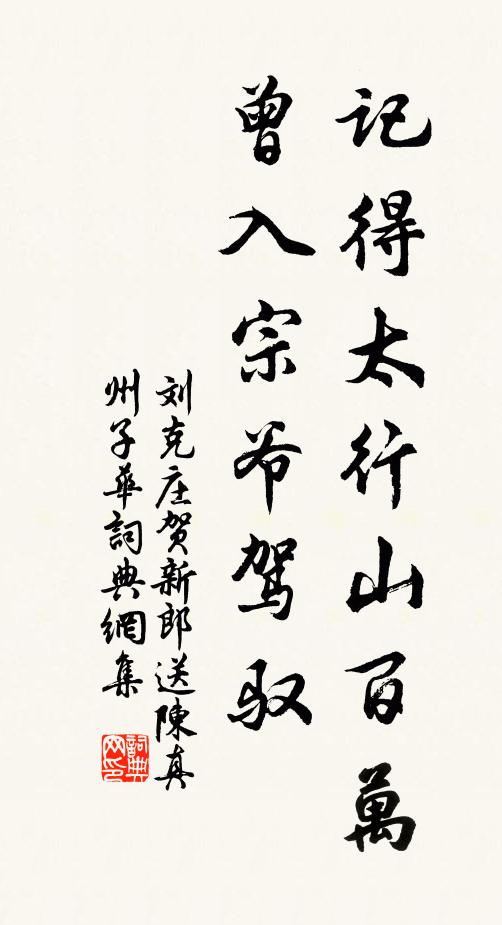 记得太行山百萬
曾入宗爷驾驭
刘克庄贺新郎送陳真
州子華詞典網集
詞典网印